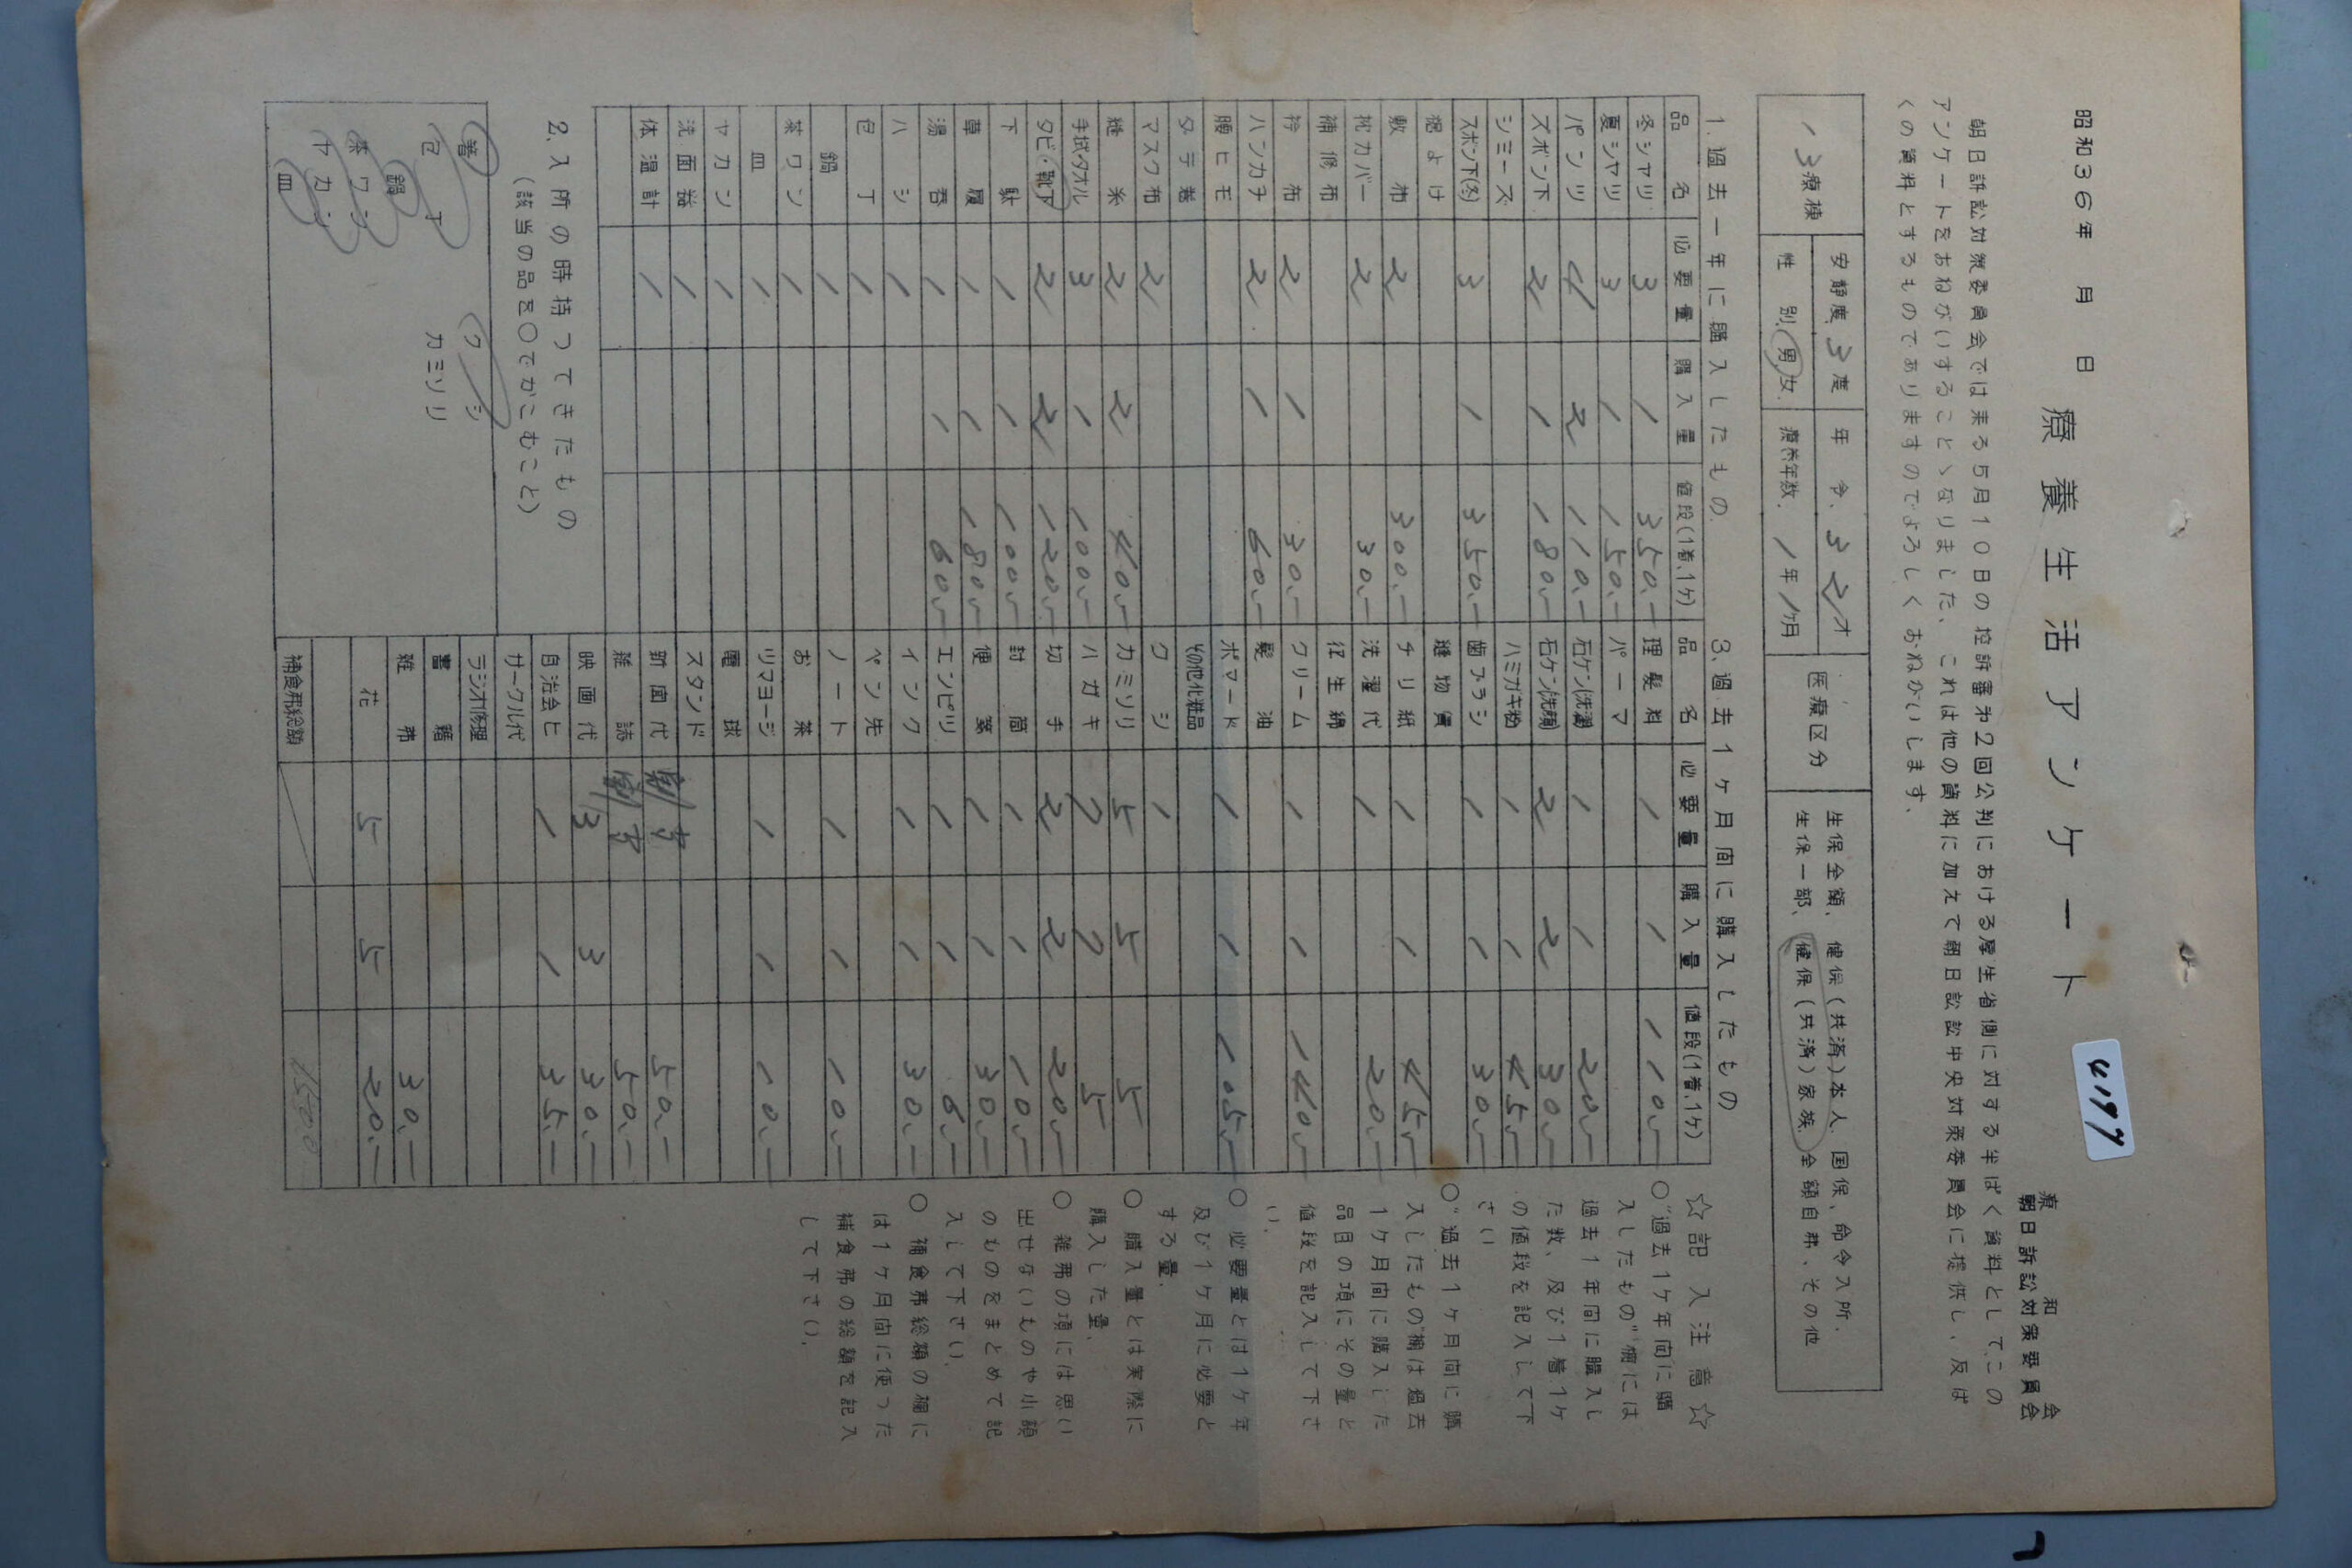 昭和36年　月　日
療養生活アンケート
4197
療和会
朝日訴訟対策委員会
朝日訴訟対策委員会では来る5月10日の控訴審第2回公判における厚生省側に対する半ばく資料としてこの
アンケートをおねがいすることゝなりました、これは他の資料に加えて朝日訟訟中央対策委員会に提供し、反ば
くの資料とするものでありますのでよろしくおねがいします、
13療棟
安静度 3度
年令、32才
医療区分
生保全額、健保(共済)本人、国保、命令入所、
性別、男 女
療養年数、1年1ヶ月
生保一部、健保(共済)家族、全額自弗、その他
1.過去一年に購入したもの
品名 必要量 購入量 値段(1着、1ヶ)
冬シヤツ 3 1 350.-
夏シヤツ 3 1 150.-
パンツ 4 2 110.-
ズボン下 2 1 180.-
シミーズ
ズボン下(冬) 3 1 350.-
裾よけ
敷布 2 300.-
枕カバー 2 30.-
補修布
衿布 2 1 30.-
ハンカチ 2 1 60.-
腰ヒモ
タテ巻
マスク布 2
縫糸 2 2 40.-
手拭・タオル 3 1 100.-
タビ・靴下 2 2 120.-
下駄 1 1 100.-
草履 1 1 180.-
湯呑 1 1 60.-
ハシ 1
包丁 1
鍋 1
茶ワン 1
皿 1
ヤカン 1
洗面器 1
体温計 1
2.入所の時持つてきたもの
(該当の品を○でかこむこと)
箸 クシ
包丁 カミソリ
鍋
茶ワン
ヤカン
皿
3.過去1ヶ月間に購入したもの
品名 必要量 購入量 値段(1着、1ヶ)
理髪料 1 1 110.-
パーマ
石ケン(洗濯) 1 1 20.-
石ケン(洗顔) 2 2 30.-
ハミガキ粉 1 1 45.-
歯ブラシ 1 1 30.-
縫物賃
チリ紙 1 1 45.-
洗濯代 1 20.-
衛生綿
クリーム 1 1 140.-
髪油
ポマード 1 1 105.-
その他化粧品
クシ 1
カミソリ 5 5 5
ハガキ 2 2 5
切手 2 2 20.-
封筒 1 1 10.-
便箋 1 1 30.-
エンピツ 1 1 6.-
インク 1 1 30.-
ペン先
ノート 1 1 10.-
お茶
ツマヨージ 1 1 10.-
電球
スタンド
新聞代 50.-
雑誌 50.-
映画代 3 3 30.-
自治会ヒ 1 1 35.-
サークル代
ラジオ修理
書籍
雑弗 30.-
花 5 5 20.-
補食弗総額 1500
☆記入注意☆
○“過去1ケ年間に購
入したもの”欄には
過去1年間に購入し
た数、及び1着1ケ
の値段を記入して下
さい
○“過去1ヶ月間に購
入したもの”欄は過去
1ケ月間に購入した
品目の項にその量と
値段を記入して下さ
い、
○必要量とは1ケ年
及び1ケ月に必要と
する量、
○購入量とは実際に
購入した量、
○雑弗の項には思い
出せないものや小額
のものをまとめて記
入して下さい、
○補食弗総額の欄に
は1ヶ月間に使つた
補食弗の総額を記入
して下さい、